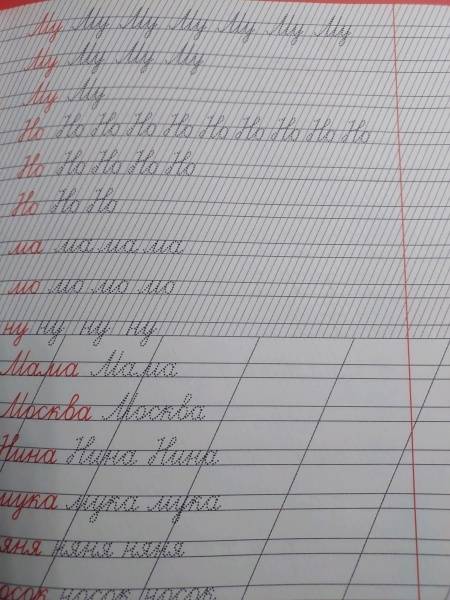 Му Му Му Му Му Му Му
Му Му Му Му
Му Му
Но Но Но Но Но Но Но Но Но Но
Но Но Но Но Но
Но Но Но
ма ма ма ма
мо мо мо мо
ну ну ну ну
Мама Мама
Москва Москва
Нина Нина Нина
мука мука мука
няня няня
носок носок